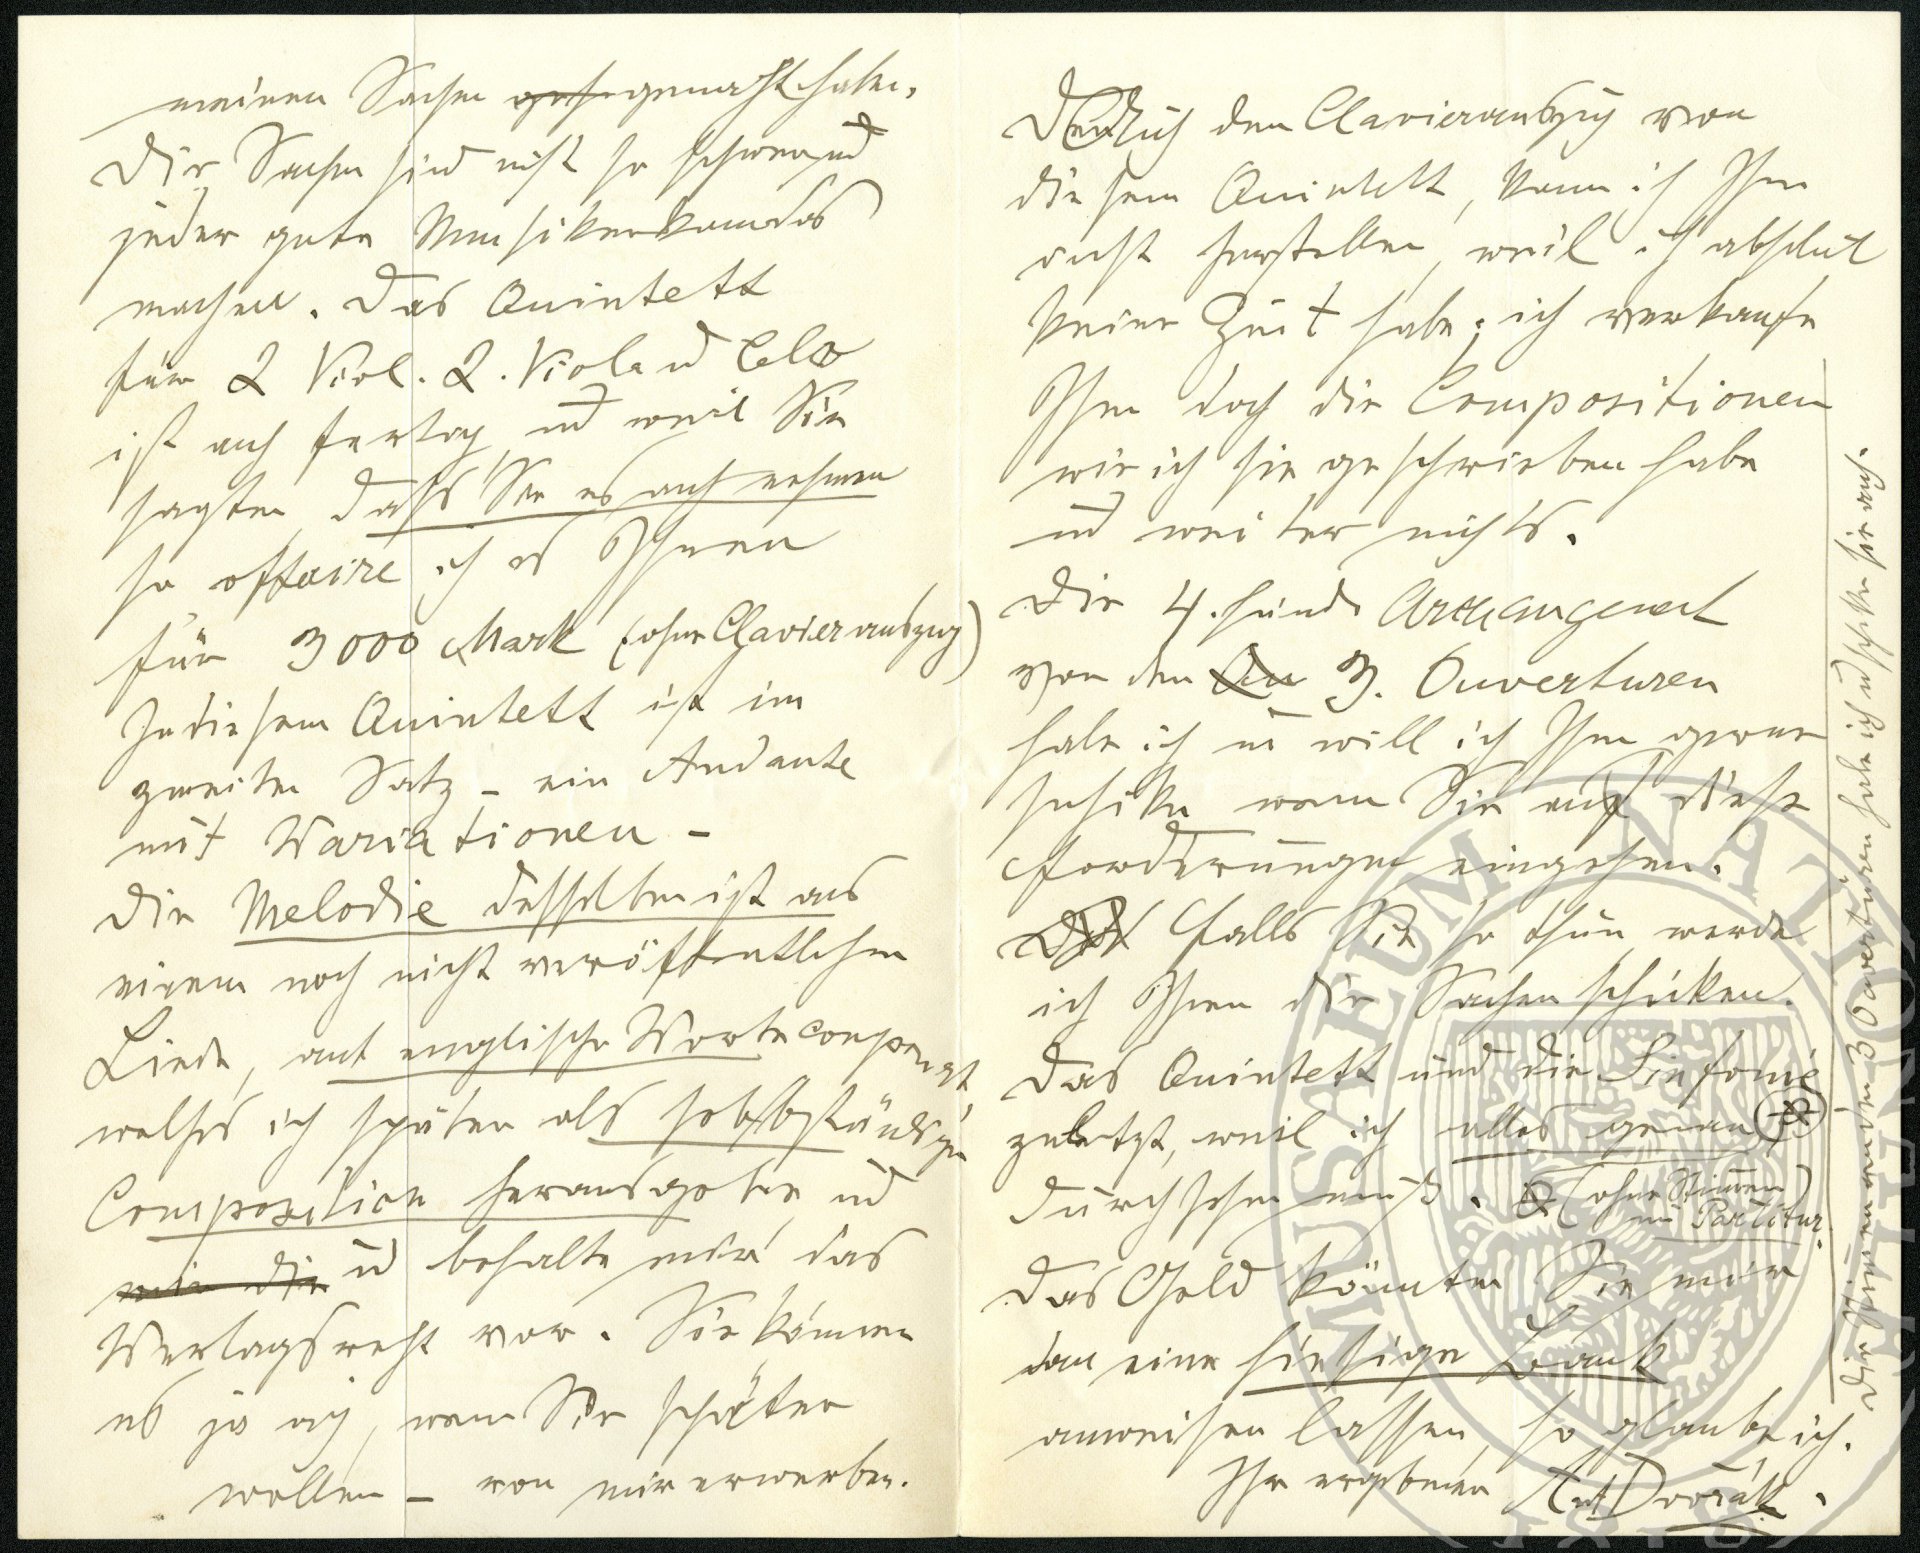 meinen Sachen gemacht habe.
Die Sachen sind nicht so schwer und
jeder gute Musiker kann das
machen. Das Quintett
für 2 Viol. 2. Viola u Celo
ist auch fertig und weil Sie
sagten, daſs Sie es auch nehmen
so offerire ich es Ihnen
für 3000 Mark (ohne Clavierauszug)
In diesem Quintett ist im
zweiten Satz – ein Andante
mit Wariationen –
die Melodie desselben ist aus
einem noch nicht veröffentlichen
Liede, auf englische Worte componirt,
welches ich später als selbständige
Composition herausgebe, und
mir die ud behalte mir das
Verlagsrecht vor. Sie können
es ja auch, wenn Sie später
wollen – von mir erwerben.
den Clavierauszug von
diesem Quintett, kann ich Ihnen
nicht herstellen, weil ich absolut
keine Zeit habe; ich verkaufe
Ihnen doch die Compositionen
wie ich sie geschrieben habe
und weiter nichts.
Die 4. händ. Arrangement
von den 3. Ouverturen
habe ich u will ich Ihnen gerne
schiken wenn Sie auf diese
Forderungen eingehen.
Falls Sie so thun, werde
ich Ihnen die Sachen schicken.
Das Quintett und die Sinfonie
zuletzt, weil ich alles genau
durchsehen muß. (ohne Stimmen
nur Partitur.)
Das Geld könnten Sie mir
an eine hiesige Bank
anweisen lassen, so glaube ich.
Ihr ergebener Ant Dvořák.
Die Stimmen von den 3 Ouverturen habe ich ud schike sie auch.
MUSAEUM NATIONALE
1818